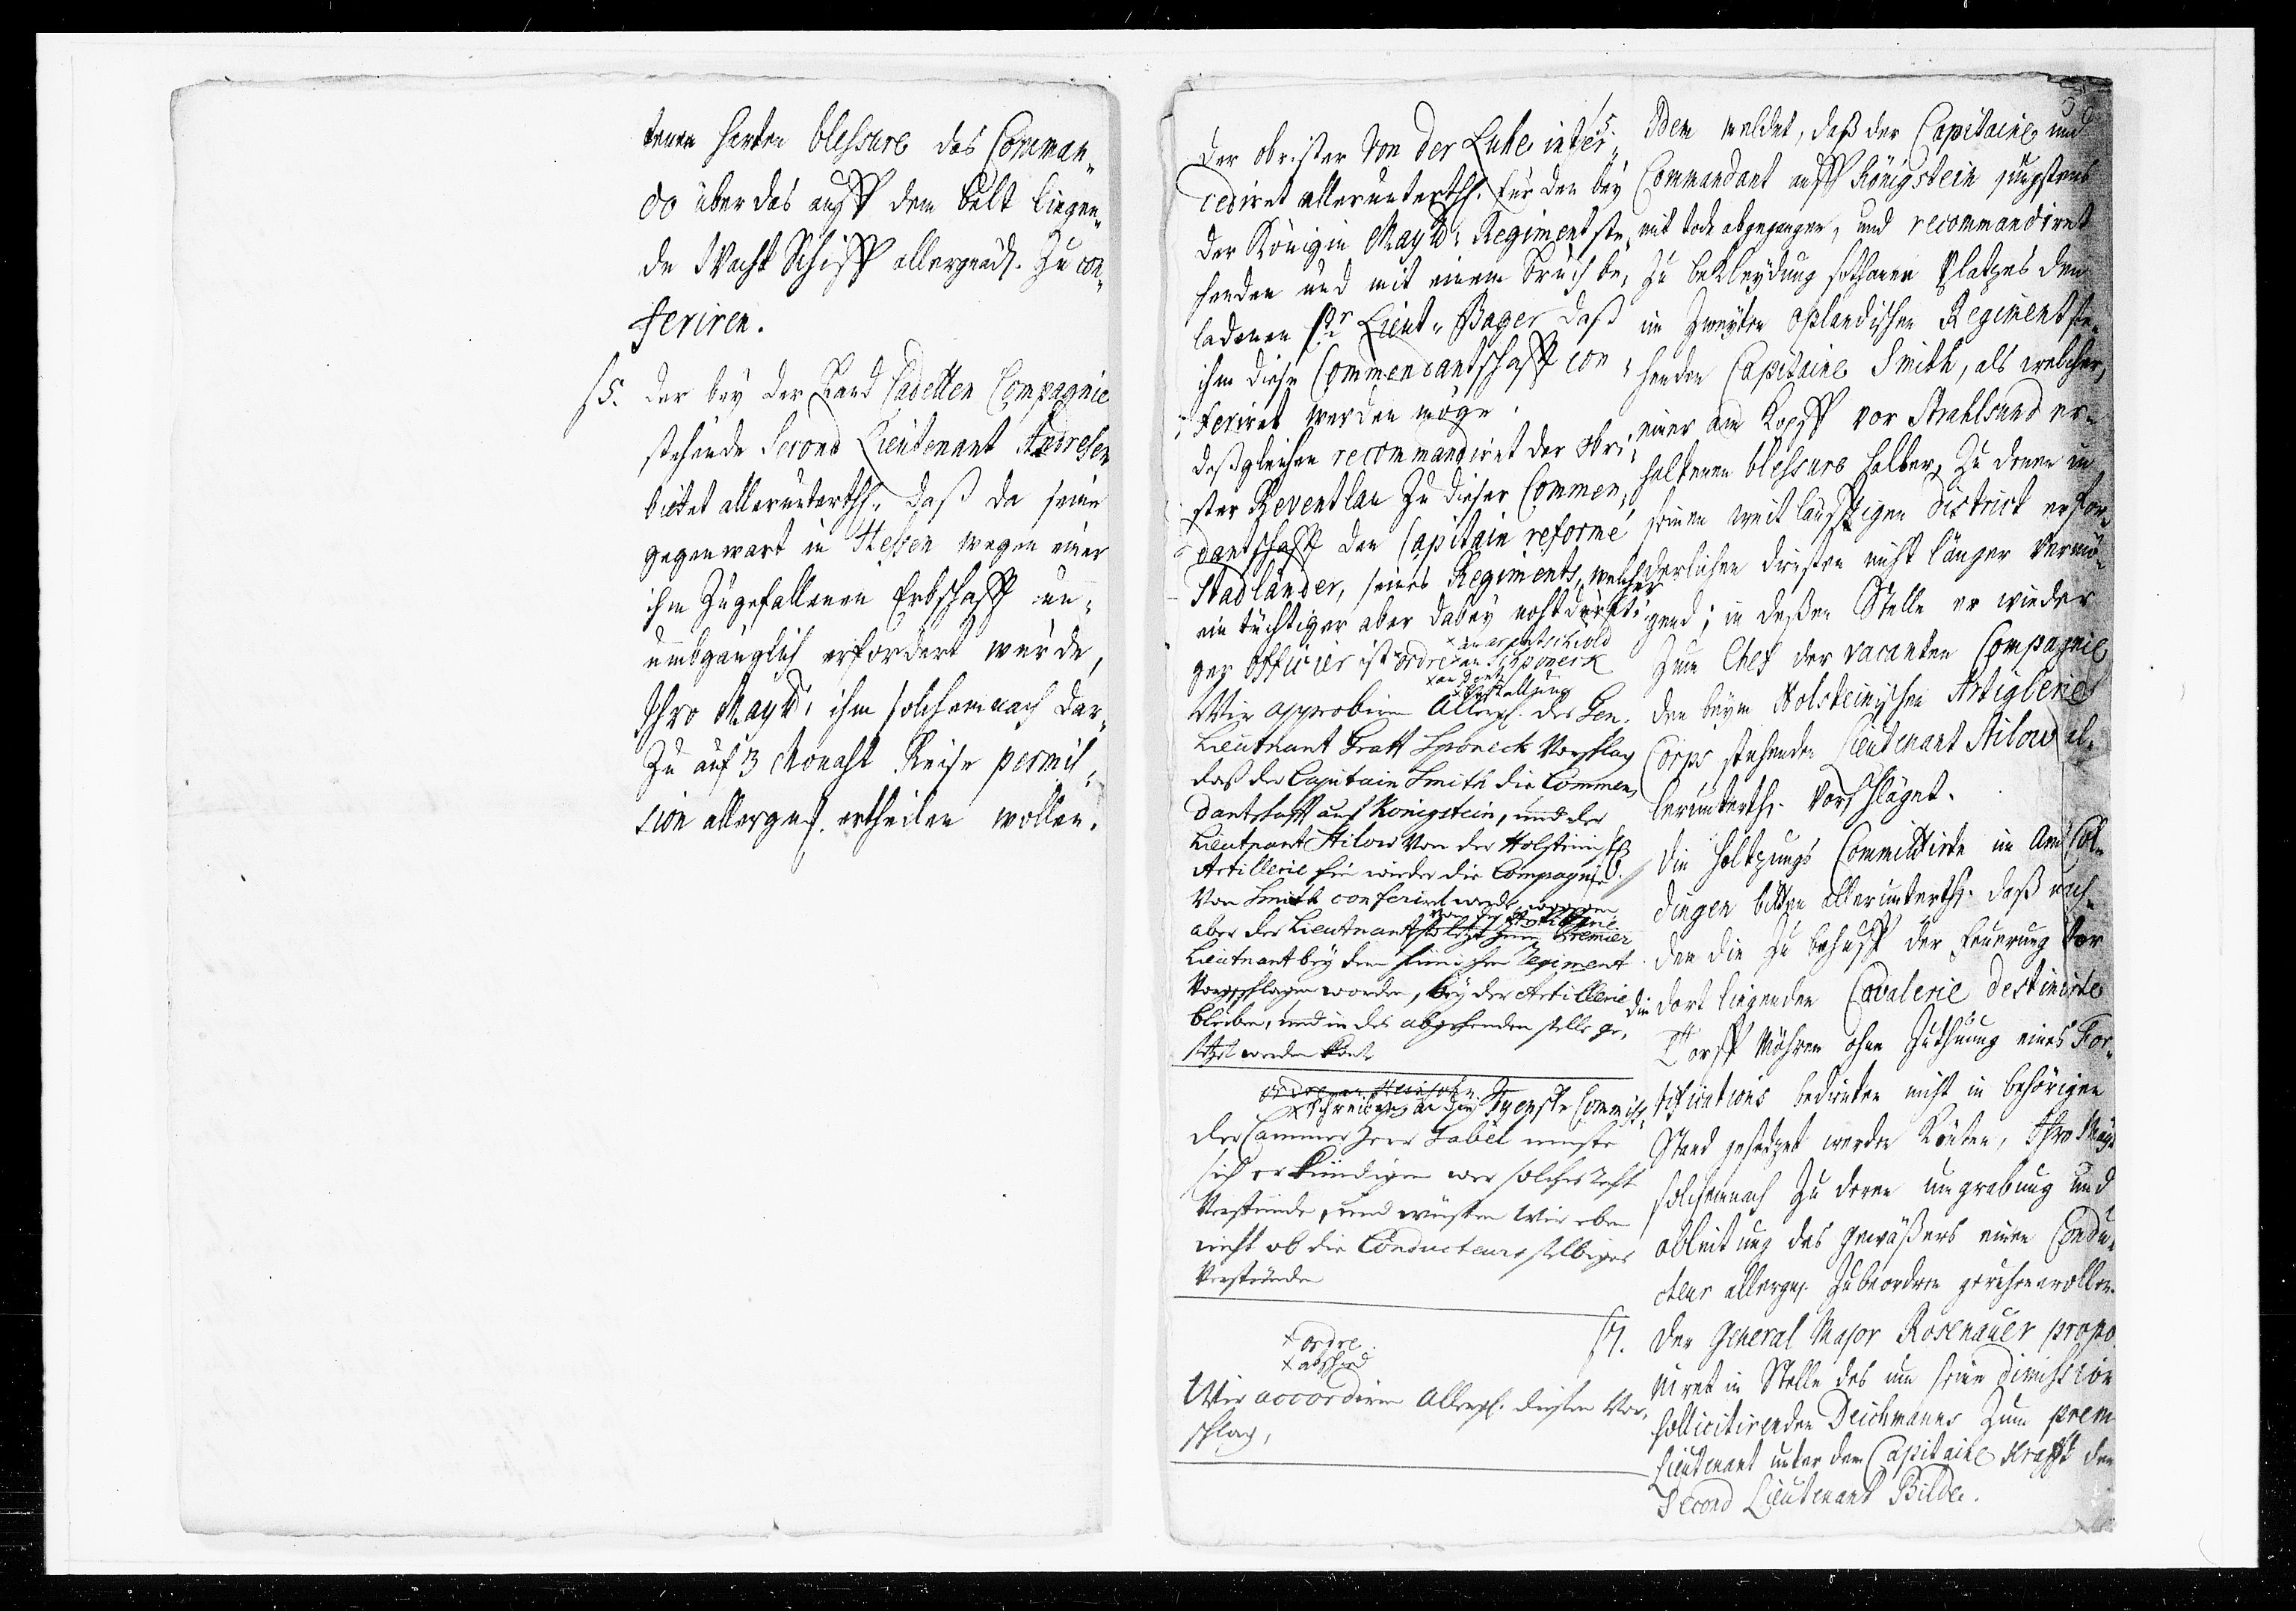 tenen harten blessure das Comman„
do über das auff dem belt liegen„
de Wacht Schiff allergnäd. Zu con„
feriren.
15. der bey der Land Cadetten Compagnie
stehende Second Lieutenant Andresen
bietet allerunterth. daß da seine
gegenwart in Hessen wegen einer
ihm Zugefallenen Erbschafft un„
umbgänglich erfordert würde,
Ihro Mayt: ihm solchemnach dar„
Zu auf 3 Monaht Reise permis„
sion allergn. ertheilen wollen.
der obrister Von der Luhe inter„
cediret allerunterth. für den bey
der Königin Mayt: Regiment ste„
henden und mit einem bruch be„
ladenen Pr Lieut. Bager daß
ihm diese Commendantschafft con„
feriret werden möge.
deßgleichen recommandiret der obri„
ster Reventlau Zu dieser Commen„
dantschafft den Capitain reformé
Stadlander, seines Regiments, welcher
ein tüchtiger aber dabey nohtdürfti„
ger officier ist
ordre an Schponeck
Wir approbiren Allergn. des Gen.
Lieutnant Graff Sponeck Vorschlag
daß der Capitain Smith die Commen„
dantschafft auf Königstein, und der
Lieutnant Stilow Von der Holsteinsch
Artillerie hin wieder die Compagnie
Von Smith conferirt werde,
aber der Lieutnant zum Premier
Lieutnant bey dem Fünischen Regiment
Vorgeschlagen worden, bey der Artillerie
bleiben, und in des abgehenden stelle ge„
setzet werden könte
ordre an
Schreiben an die Commiss.
der Cammer Herr Gabel muste
sich erkündigen wer solches recht
Verstünde, und wüsten Wir eben
nicht ob die Conducteurs selbiges
Verstünden
ordre
abschied
Wir accordiren Allergn. diesen Vor„
schlag,
Dem meldet, daß der Capitaine und
Commandant auff Königstein jüngstens
mit tode abgegangen, und recommandiret
Zu bekleydung sothanen Platzes den
im Zweyten oplandischen Regiment ste„
henden Capitaine Smith, als welcher,
einer am Kopff vor Strahlsund er„
haltenen blessure halber, Zu denen in
seinem weitläufftigen district erfor„
derlichen diensten nicht länger Vermö„
gend; in deßen Stelle er wieder
Zum Chef der vacanten Compagnie
den beym Holsteinischen Artiglerie
Corps stehenden Lieutenant Stilow al„
lerunterth. Vorschläget.
die Holtzungs Committirte im Amt Col„
dingen bitten allerunterth. daß nach„
dem die Zu behuff der feuerung vor
die dort liegenden Cavalerie destinirte
Torff Möhren ohne Zuthuung eines For„
tifications bedienten nicht in behörigen
Stand gesetzet werden könten, Ihro Mayt
solchemnach Zu deren umgrabung und
ableitung des gewäßers einen Condu„
cteur allergn. Zubeordren geruhen wollen.
17. Der General Major Rosenauer propo„
niret in Stelle des um seine dimission
sollicitirenden Deichmanns Zum prem
Lieutenant unter dem Capitaine Krafft den
Second Lieutenant Bilde.